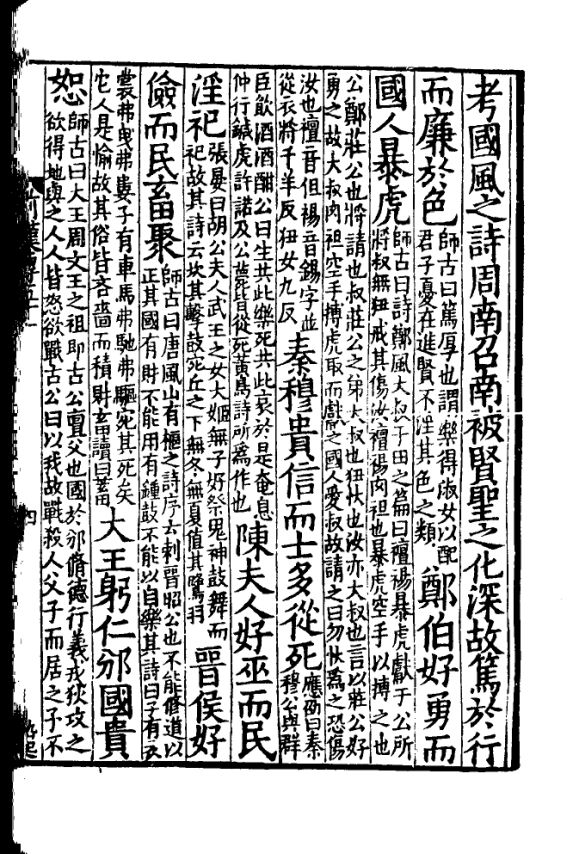 考國風之詩周南召南被賢聖之化深故篤於行
而廉於色
師古曰篤厚也謂樂得淑女以配
君子憂在進賢不淫其色之類
鄭伯好勇而
國人暴虎
師古曰詩鄭風大叔于田之篇曰襢裼暴虎獻于公所
將叔無狃戒其傷汝襢裼肉袒也暴虎空手以搏之也
公鄭莊公也將請也叔莊公之弟大叔也狃忕也汝亦大叔也言以莊公好
勇之故大叔肉袒空手搏虎取而獻之國人愛叔故請之曰勿忕爲之恐傷
汝也襢音但裼音錫字並
從衣將千羊反狃女九反
秦穆貴信而士多從死
應劭曰秦
穆公與群
臣飲酒酒酣公曰生共此樂死共此哀於是奄息
仲行鍼虎許諾及公薨皆從死黃鳥詩所爲作也
陳夫人好巫而民
淫祀
張晏曰胡公夫人武王之女大姬無子好祭鬼神鼓舞而
祀故其詩云坎其擊鼓宛丘之下無冬無夏值其鷺羽
晉侯好
儉而民畜聚
師古曰唐風山有樞之詩序云刺晉昭公也不能修道以
正其國有財不能用有鍾鼓不能以自樂其詩曰子有衣
裳弗曳弗婁子有車馬弗馳弗驅宛其死矣
它人是愉故其俗皆吝嗇而積財畜讀曰蓄
大王躬仁邠國貴
恕
師古曰大王周文王之祖即古公亶父也國於邠脩德行義戎狄攻之
欲得地與之人人皆怒欲戰古公曰以我故戰殺人父子而居之予不
四